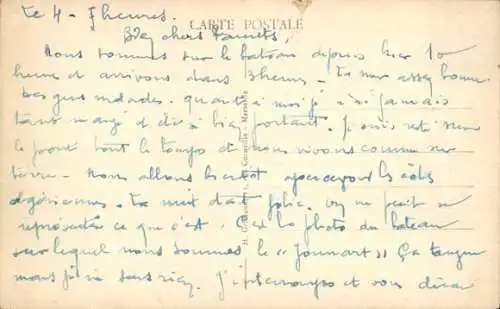 Le 4 - 7 heures.
CARTE POSTALE
Bien chers Parents,
Nous sommes sur le bateau depuis hier 10
heures et arrivons dans 3 heures - La mer assez bonne
Des gens malades. quant à moi je n'ai jamais
tant mangé et été si bien portant. Je suis resté sur
le pont tout le temps et nous vivons comme sur
terre - Nous allons bientôt apercevoir les côtes
algériennes. La nuit était jolie. on ne peut se
représenter ce que c'est. C'est la photo du bateau
sur lequel nous sommes le " Jonnart " Ça tangue
mais je ne sens rien. J'interromps et vous dirai
Marseille